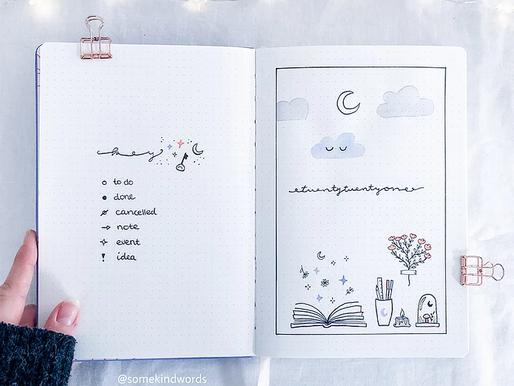 key
to do
done
cancelled
note
event
idea
twentytwentyone
@somekindwords